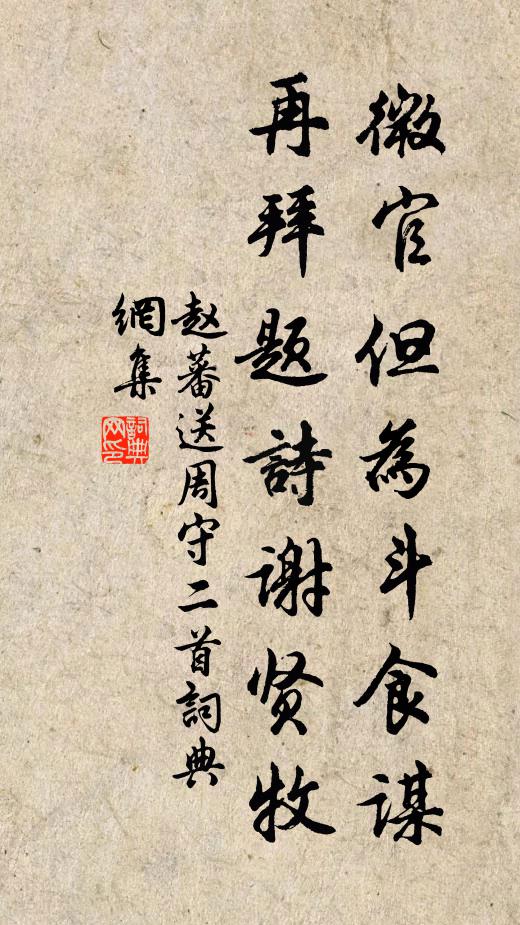 微官但為斗食謀
再拜題詩谢贤牧
赵蕃送周守二首詞典
網集
詞典
网印